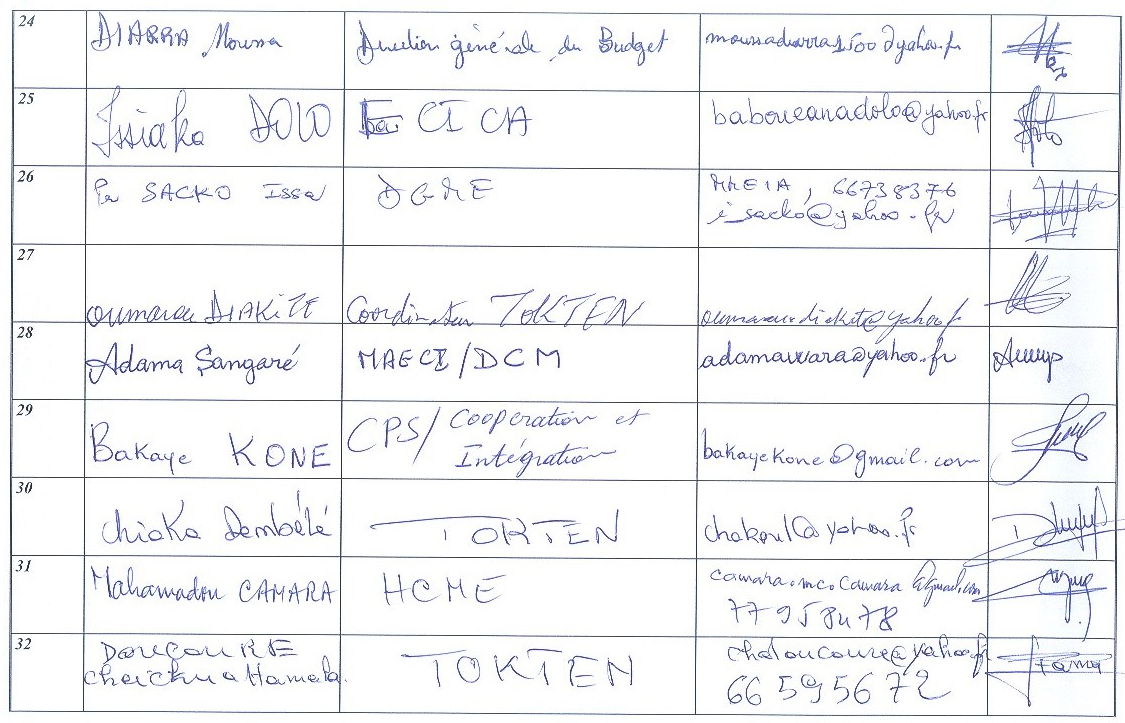 24 DIARRA Moussa Direction générale du Budget moussadiarra1500@yahoo.fr
25 Issiaka DOLO CICA baboureanadolo@yahoo.fr
26 Pr SACKO Issa DGME MAEIA, 66738376
i_sacko@yahoo.fr
27 oumarou DIAKITE Coordinateur TOKTEN
28 Adama Sangaré MAECI/DCM adamawara@yahoo.fr
29 Bakaye KONE CPS/ Cooperation et bakayekone@gmail.com
Intégration
30 Chiaka Dembélé TOKTEN chakoul@yahoo.fr
31 Mahamadou CAMARA HCME camara.mc.camara@gmail.com
77958478
32 DOUCOURE TOKTEN chdoucoure@yahoo.fr
cheickna Hamala. 66595672